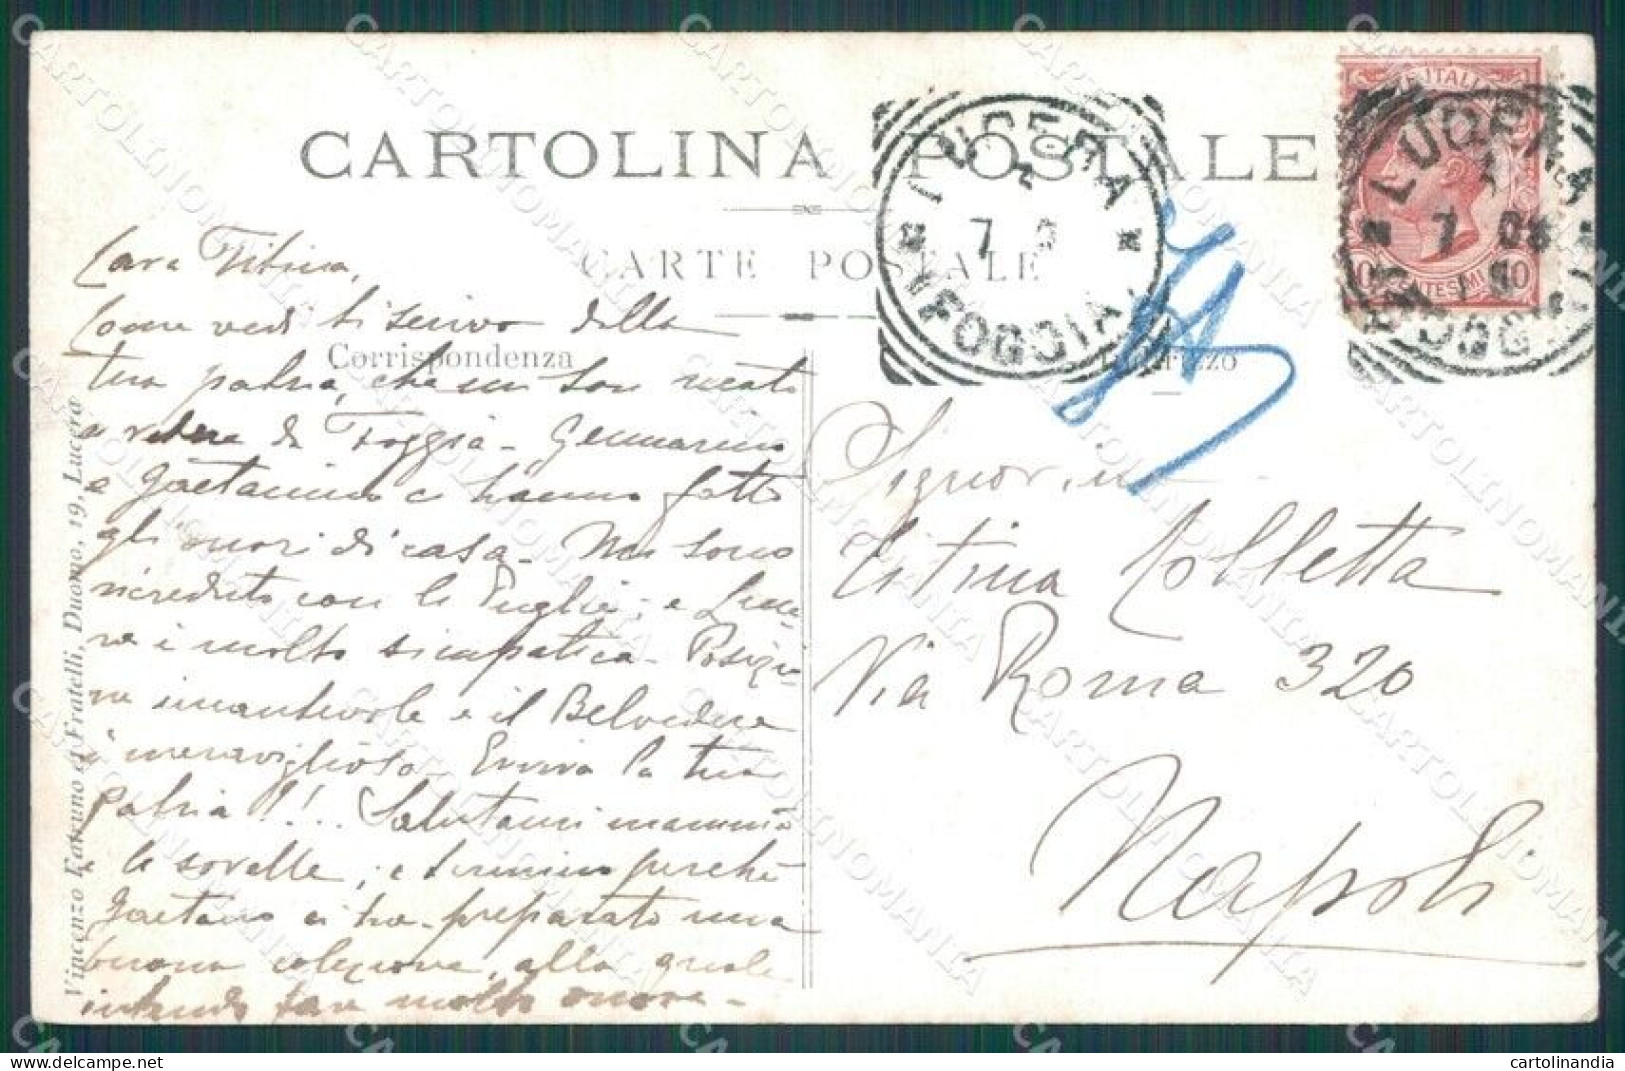 CARTOLINA POSTALE
CARTE POSTALE
Corrispondenza
LUCERA
7
FOGGIA
LUCERA
7 08
CENTESIMI 10
Cara Titina,
Come vedi ti scrivo dalla
tua patria, che mi son recato
a vedere da Foggia - Gennarino
e Gaetanino ci hanno fatto
gli onori di casa - Mi sono
ricreduto con le Puglie; e Luce-
ra è molto simpatica - Posizio-
ne incantevole e il Belvedere
è meraviglioso - Evviva la tua
patria!!! .. Salutami mammà
e le sorelle; e termino perchè
Gaetano ci ha preparato una
buona colazione, alla quale
intendo fare molto onore -
Signorina
Titina Colletta
Via Roma 320
Napoli
Vincenzo Catapano e Fratelli, Duomo, 19, Lucera
CARTOLINOMANIA
delcampe.net
cartolinandia